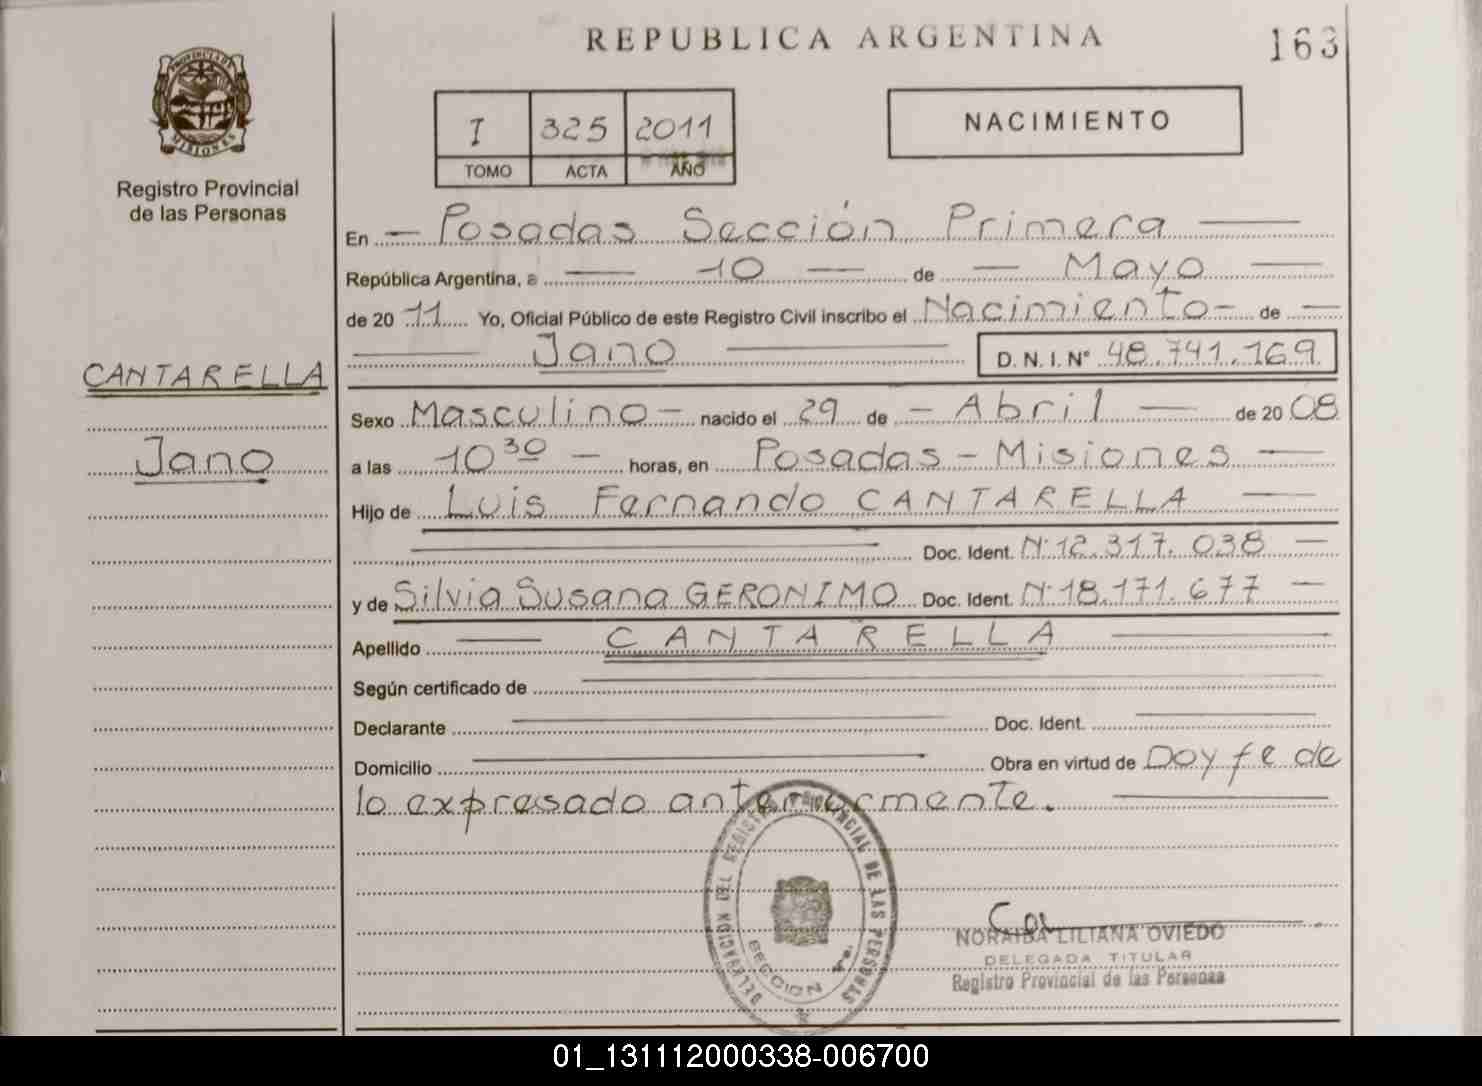 REPUBLICA ARGENTINA
163
PROVINCIA DE
MISIONES
Registro Provincial
de las Personas
I 325 2011
TOMO ACTA AÑO
NACIMIENTO
En Posadas Sección Primera
República Argentina, a 10 de Mayo
de 2011 Yo, Oficial Público de este Registro Civil inscribo el Nacimiento de
Jano D. N. I. N° 48.741.169
CANTARELLA
Sexo Masculino nacido el 29 de Abril de 2008
Jano
a las 10 30 horas, en Posadas - Misiones
Hijo de Luis Fernando CANTARELLA
Doc. Ident. N° 12.317.038
y de Silvia Susana GERONIMO Doc. Ident. N° 18.171.677
Apellido CANTARELLA
Según certificado de
Declarante Doc. Ident.
Domicilio Obra en virtud de Doy fe de
lo expresado anteriormente.
DELEGACION DEL REGISTRO PROVINCIAL DE LAS PERSONAS
SECCION 1ra.
NORAIBA LILIANA OVIEDO
DELEGADA TITULAR
Registro Provincial de las Personas
01_131112000338-006700